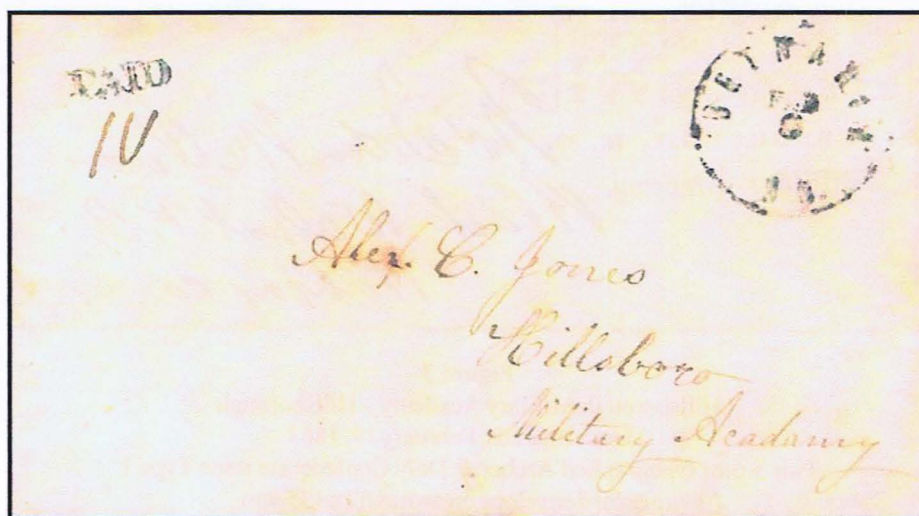 PAID
10
BETHANIA
FEB
Alex. C. Jones
Hillsboro
Military Acadamy